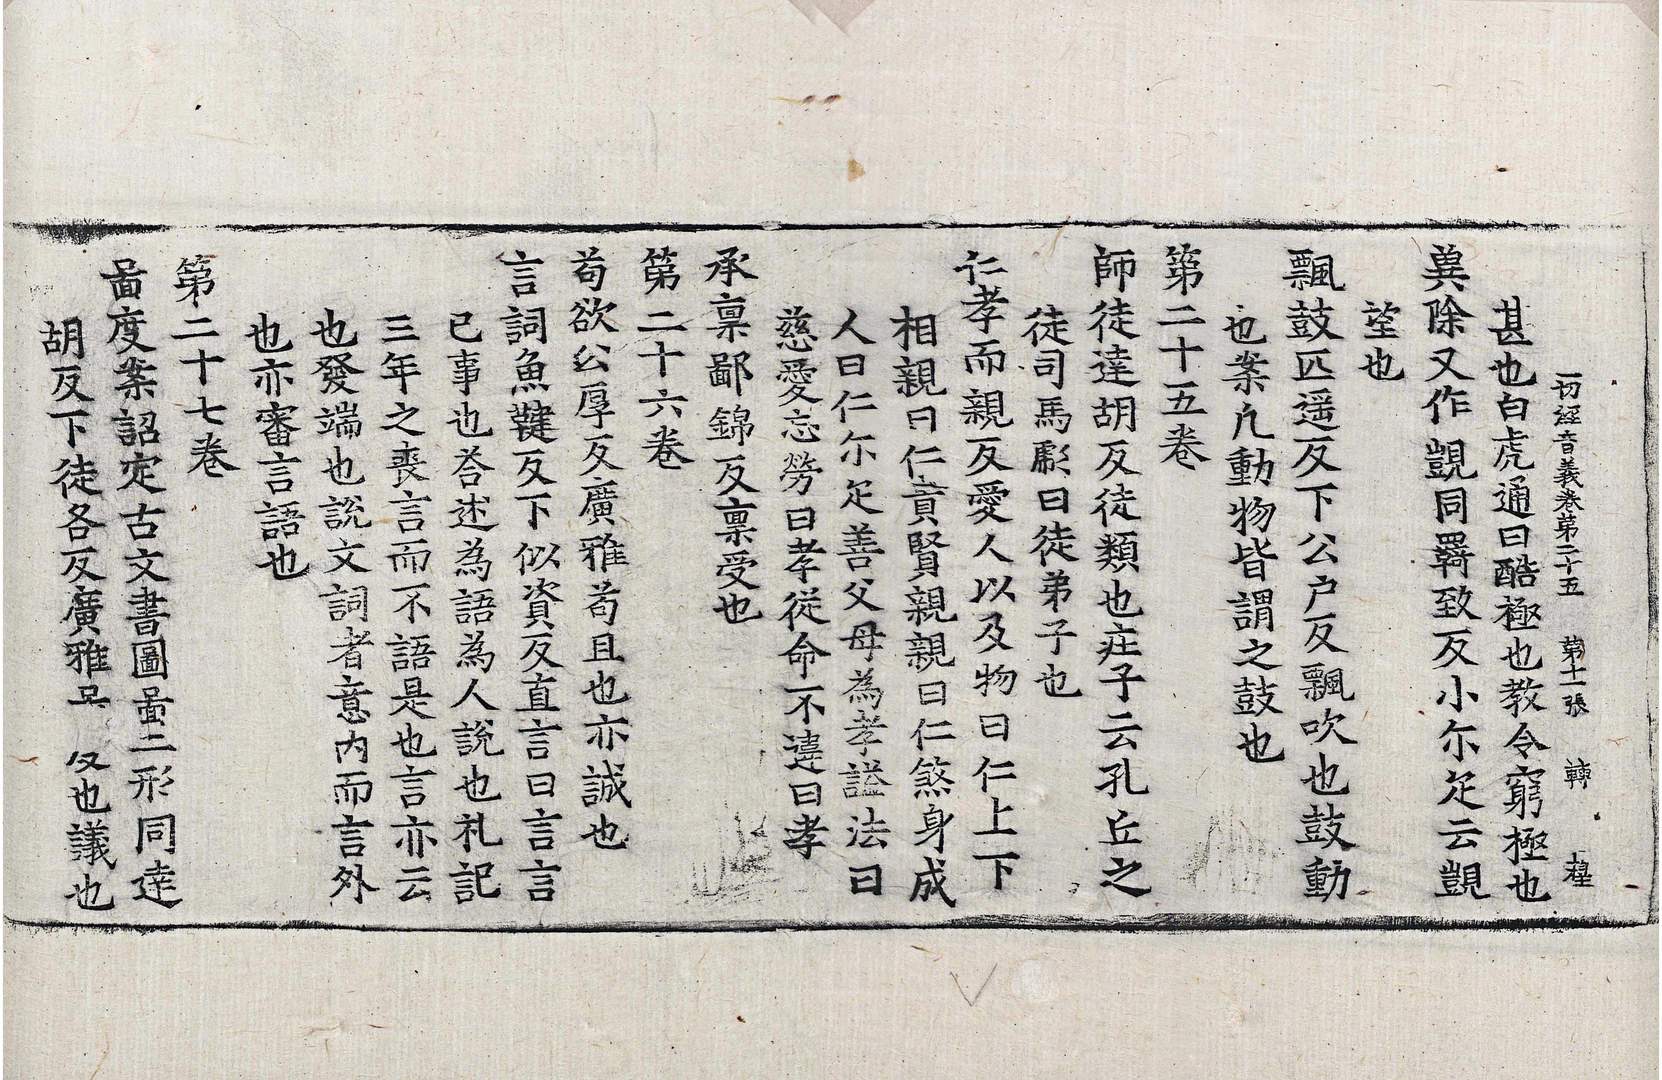 一切經音義卷第二十五 第十一張 轉
甚也白虎通曰酷極也教令窮極也
兾除又作覬同羇致反小尒疋云覬
望也
飄鼓匹遥反下公户反飄吹也鼓動
也案凡動物皆謂之鼓也
第二十五卷
師徒達胡反徒類也庄子云孔丘之
徒司馬彪曰徒弟子也
仁孝而親反愛人以及物曰仁上下
相親曰仁貴賢親親曰仁煞身成
人曰仁尒疋善父母為孝謚法曰
慈愛忘勞曰孝從命不違曰孝
承禀鄙錦反禀受也
第二十六卷
苟欲公厚反廣雅苟且也亦誠也
言詞魚鞬反下似資反直言曰言言
已事也荅述為語為人説也礼記
三年之喪言而不語是也言亦云
也發端也説文詞者意内而言外
也亦審言語也
第二十七卷
啚度案詔定古文書圖啚二形同達
胡反下徒各反廣雅 也議也